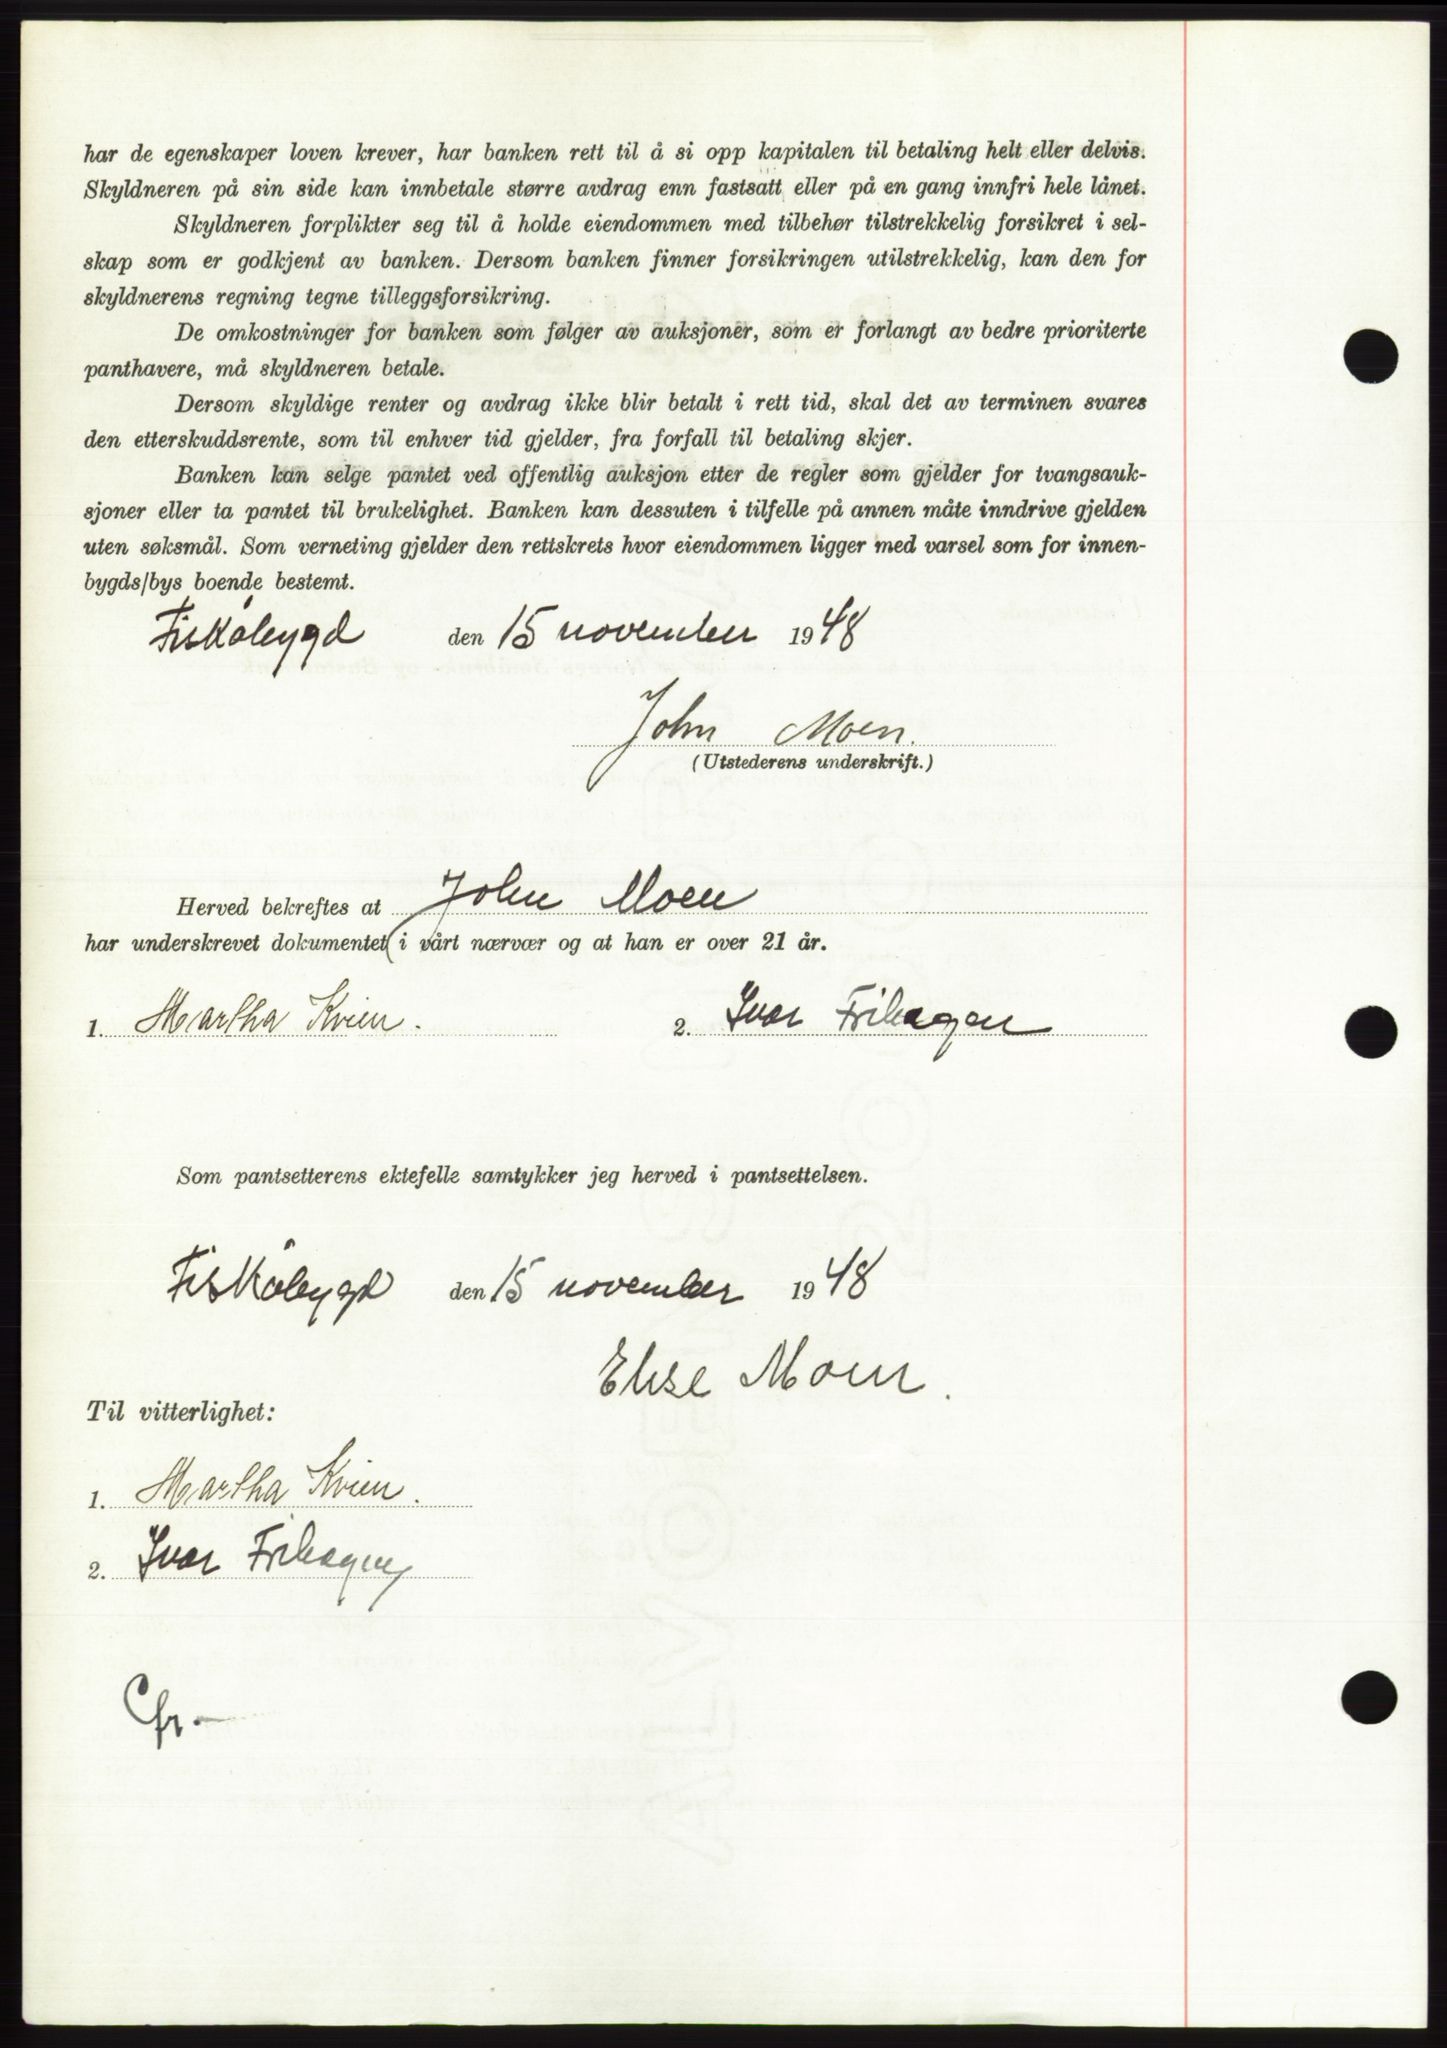 har de egenskaper loven krever, har banken rett til å si opp kapitalen til betaling helt eller delvis.
Skyldneren på sin side kan innbetale større avdrag enn fastsatt eller på en gang innfri hele lånet.
Skyldneren forplikter seg til å holde eiendommen med tilbehør tilstrekkelig forsikret i sel-
skap som er godkjent av banken. Dersom banken finner forsikringen utilstrekkelig, kan den for
skyldnerens regning tegne tilleggsforsikring.
De omkostninger for banken som følger av auksjoner, som er forlangt av bedre prioriterte
panthavere, må skyldneren betale.
Dersom skyldige renter og avdrag ikke blir betalt i rett tid, skal det av terminen svares
den etterskuddsrente, som til enhver tid gjelder, fra forfall til betaling skjer.
Banken kan selge pantet ved offentlig auksjon etter de regler som gjelder for tvangsauk-
sjoner eller ta pantet til brukelighet. Banken kan dessuten i tilfelle på annen måte inndrive gjelden
uten søksmål. Som verneting gjelder den rettskrets hvor eiendommen ligger med varsel som for innen-
bygds/bys boende bestemt.
Fiskåbygd den 15 november 1948
John Moen.
(Utstederens underskrift.)
Herved bekreftes at John Moen
har underskrevet dokumentet i vårt nærvær og at han er over 21 år.
1. Martha Kvien. 2. Ivar Frihagen
Som pantsetterens ektefelle samtykker jeg herved i pantsettelsen.
Fiskåbygd den 15 november 1948
Elise Moen.
Til vitterlighet:
1. Martha Kvien.
2. Ivar Frihagen